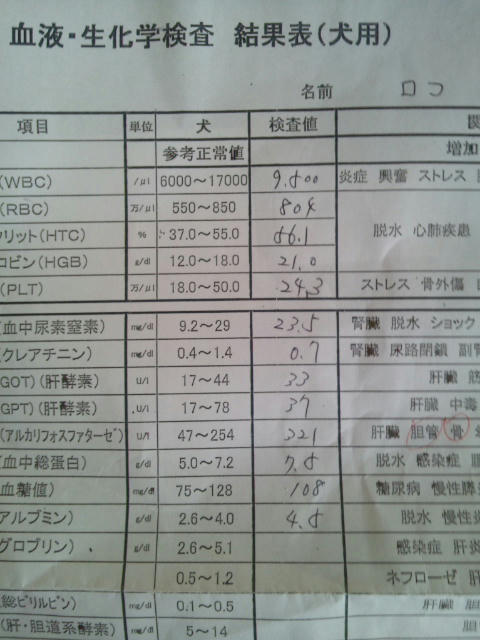 血液・生化学検査 結果表(犬用)
名前 ロコ
項目 単位 犬 検査値
参考正常値 増加
(WBC) /μl 6000～17000 9.800 炎症 興奮 ストレス
(RBC) 万/μl 550～850 804
クリット(HTC) % 37.0～55.0 56.1 脱水 心肺疾患
コビン(HGB) g/dl 12.0～18.0 21.0
(PLT) 万/μl 18.0～50.0 24.3 ストレス 骨外傷
(血中尿素窒素) mg/dl 9.2～29 23.5 腎臓 脱水 ショック
(クレアチニン) mg/dl 0.4～1.4 0.7 腎臓 尿路閉鎖 副腎
GOT)(肝酵素) U/l 17～44 33 肝臓 筋
GPT)(肝酵素) U/l 17～78 37 肝臓 中毒
(アルカリフォスファターゼ) U/l 47～254 321 肝臓 胆管 骨
(血中総蛋白) g/dl 5.0～7.2 7.8 脱水 感染症
血糖値) mg/dl 75～128 108 糖尿病 慢性膵炎
アルブミン) g/dl 2.6～4.0 4.8 脱水 慢性炎
グロブリン) g/dl 2.6～5.1 感染症 肝炎
0.5～1.2 ネフローゼ 肝
総ビリルビン) mg/dl 0.1～0.5 肝臓 胆
(肝・胆道系酵素) mg/dl 5～14 肝